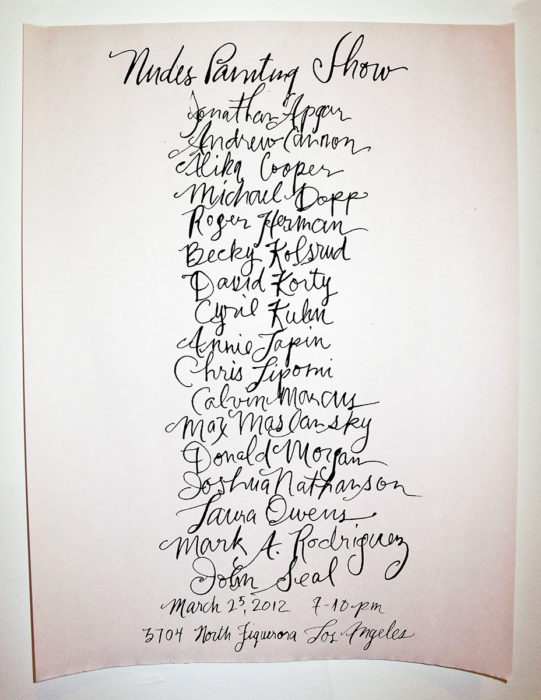 Nudes Painting Show
Jonathan Apgar
Andrew Cannon
Alika Cooper
Michael Dopp
Roger Herman
Becky Kolsrud
David Korty
Cyril Kuhn
Annie Lapin
Chris Lipomi
Calvin Marcus
Max Maslansky
Donald Morgan
Joshua Nathanson
Laura Owens
Mark A. Rodriguez
John Seal
March 25, 2012 7-10pm
3704 North Figueroa Los Angeles